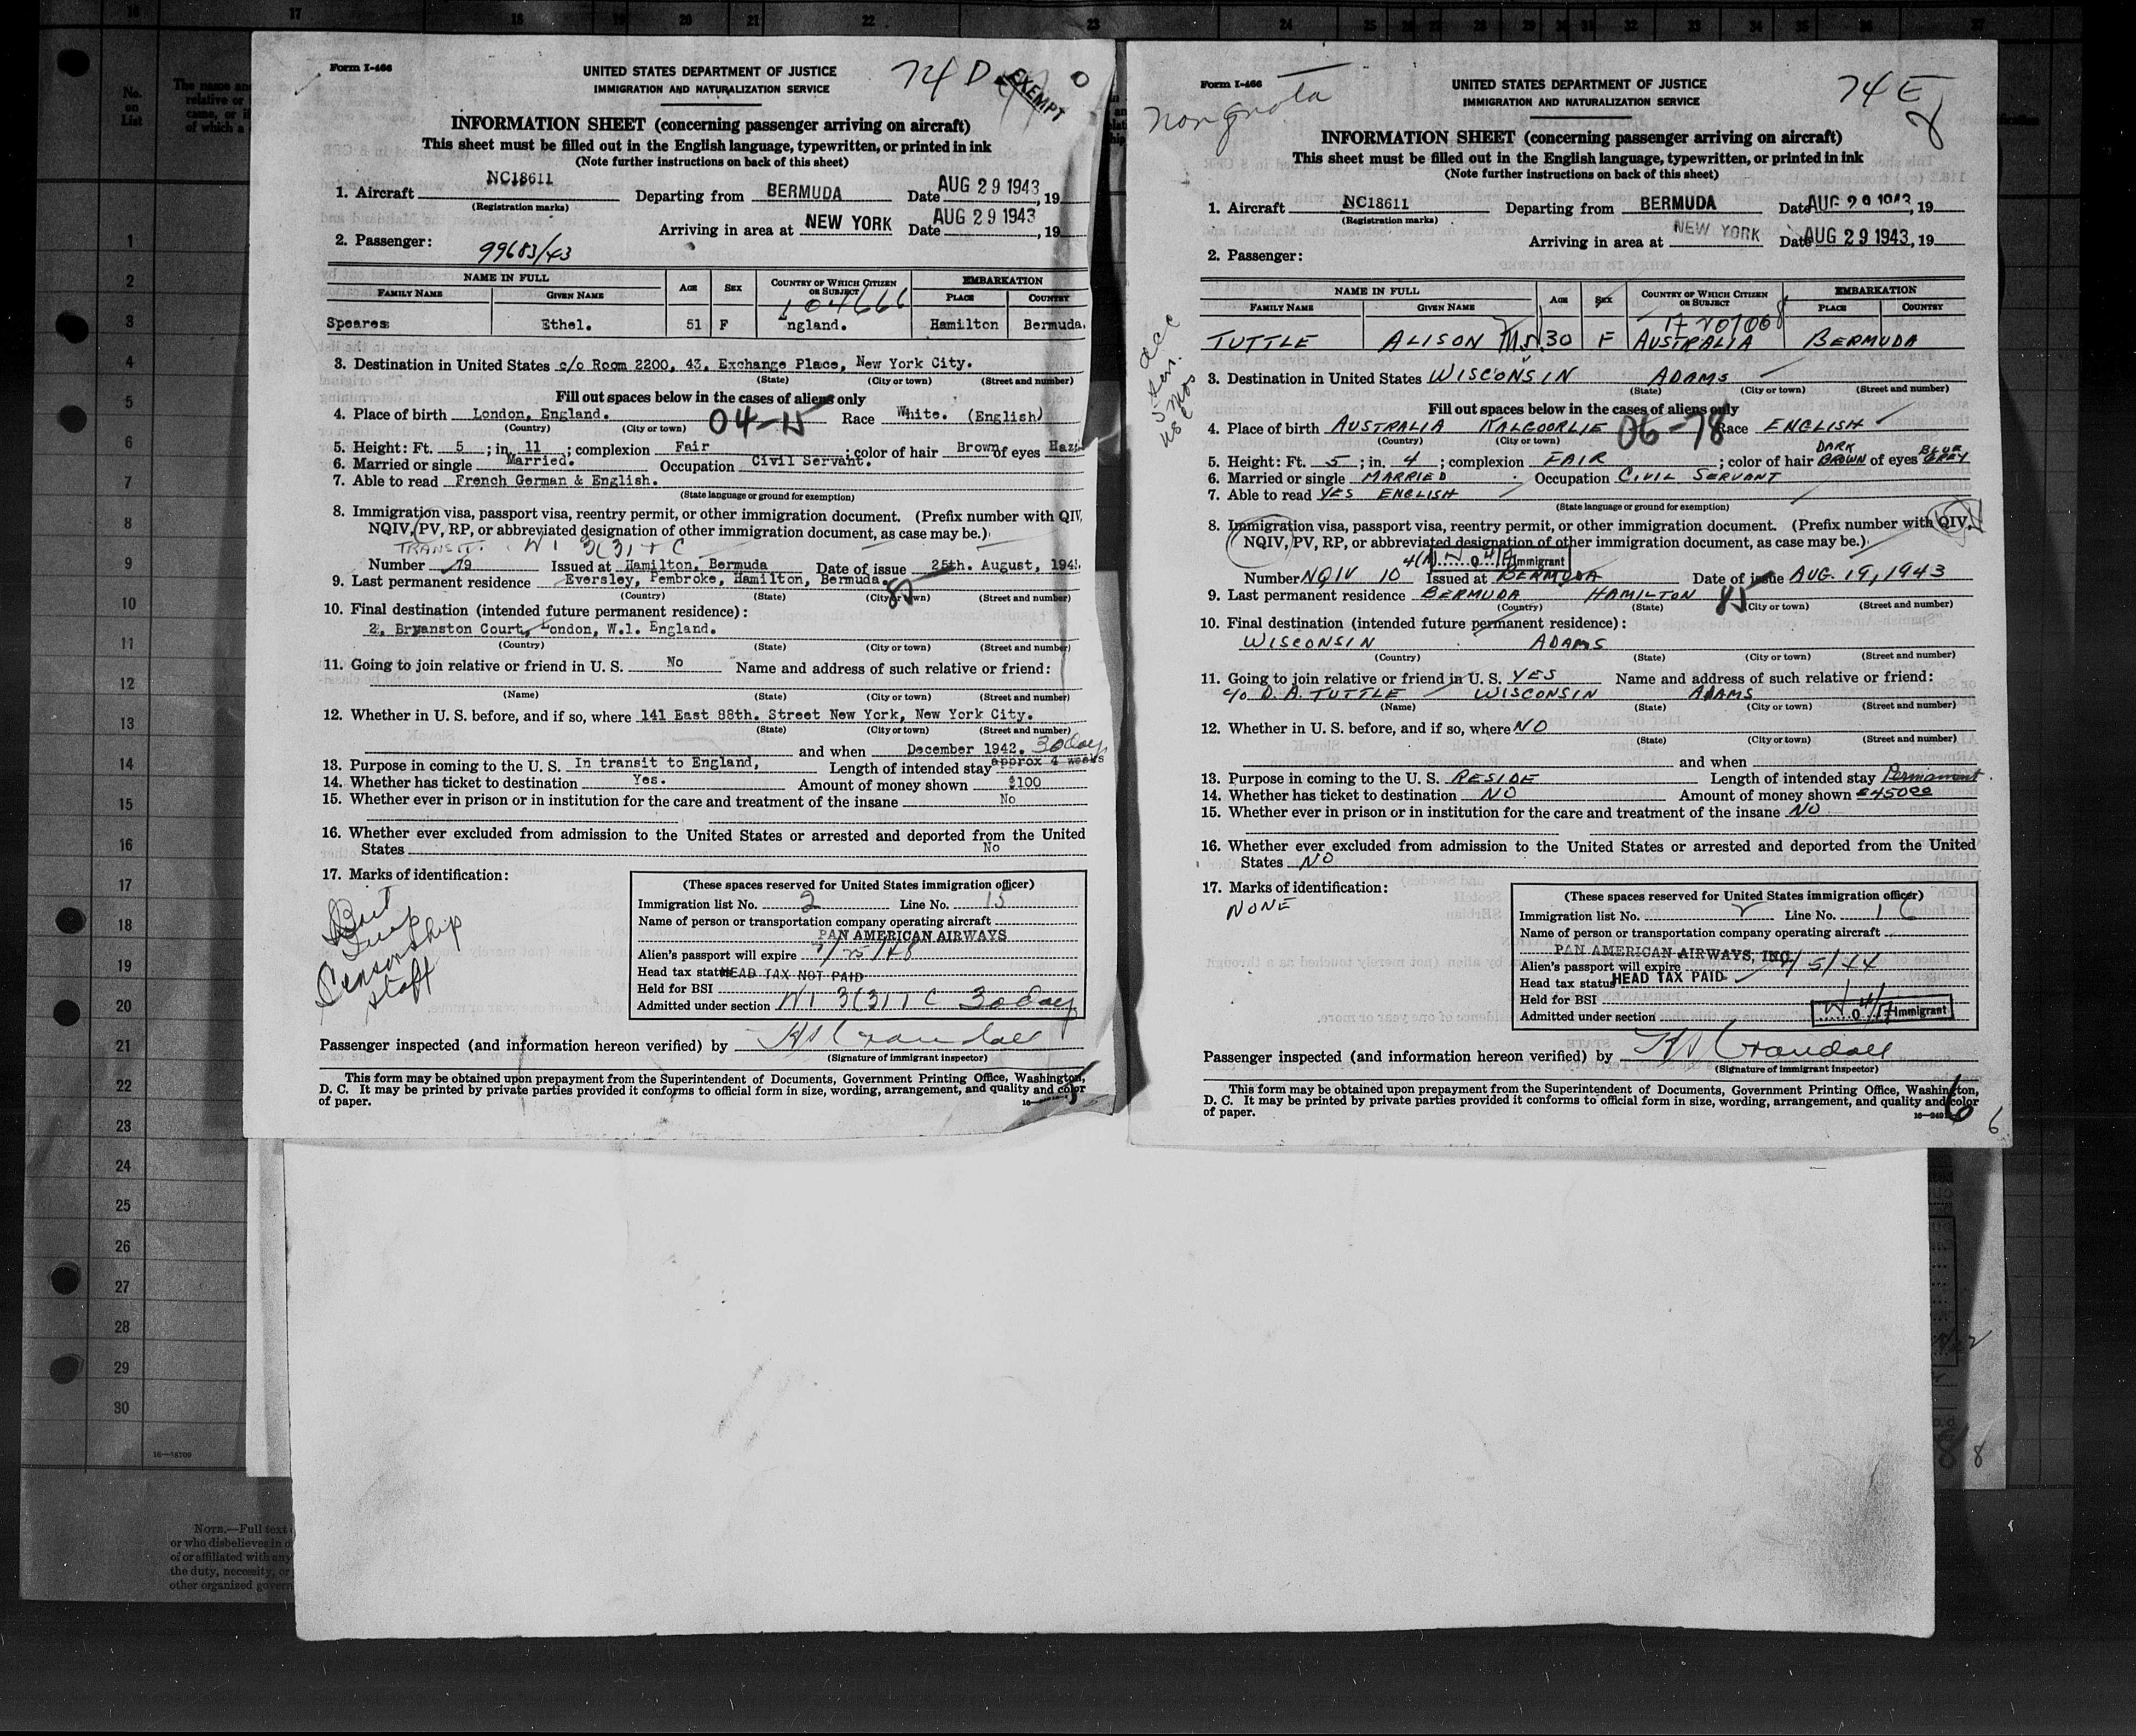 16 17 18 19 20 21 22 23 24 25 26 27 28 29 30 31 32 33 34 35 36 37
No. on List
1
2
3
4
5
6
7
8
9
10
11
12
13
14
15
16
17
18
19
20
21
22
23
24
25
26
27
28
29
30
Form I-466
74 D
EXEMPT
UNITED STATES DEPARTMENT OF JUSTICE
IMMIGRATION AND NATURALIZATION SERVICE
INFORMATION SHEET (concerning passenger arriving on aircraft)
This sheet must be filled out in the English language, typewritten, or printed in ink
(Note further instructions on back of this sheet)
1. Aircraft NC18611 Departing from BERMUDA Date AUG 29 1943, 19
(Registration marks)
Arriving in area at NEW YORK Date AUG 29 1943, 19
2. Passenger: 99683/43
NAME IN FULL AGE SEX COUNTRY OF WHICH CITIZEN OR SUBJECT EMBARKATION
FAMILY NAME GIVEN NAME PLACE COUNTRY
104666
Speares Ethel. 51 F ngland. Hamilton Bermuda.
3. Destination in United States c/o Room 2200, 43, Exchange Place, New York City.
(State) (City or town) (Street and number)
Fill out spaces below in the cases of aliens only
4. Place of birth London, England. 04-15 Race White. (English)
(Country) (City or town)
5. Height: Ft. 5; in. 11; complexion Fair; color of hair Brown of eyes Haz
6. Married or single Married. Occupation Civil Servant.
7. Able to read French German & English.
(State language or ground for exemption)
8. Immigration visa, passport visa, reentry permit, or other immigration document. (Prefix number with QIV,
NQIV, PV, RP, or abbreviated designation of other immigration document, as case may be.)
TRANSIT. WT 3(3) TC
Number 79 Issued at Hamilton, Bermuda Date of issue 25th. August, 194
9. Last permanent residence Eversley, Pembroke, Hamilton, Bermuda. 85
(Country) (State) (City or town) (Street and number)
10. Final destination (intended future permanent residence):
2, Bryanston Court, London, W.1. England.
(Country) (State) (City or town) (Street and number)
11. Going to join relative or friend in U. S. No Name and address of such relative or friend:
(Name) (State) (City or town) (Street and number)
12. Whether in U. S. before, and if so, where 141 East 88th. Street New York, New York City.
(State) (City or town) (Street and number)
and when December 1942. 30 days
13. Purpose in coming to the U. S. In transit to England, Length of intended stay approx 4 weeks
14. Whether has ticket to destination Yes. Amount of money shown $100
15. Whether ever in prison or in institution for the care and treatment of the insane No
16. Whether ever excluded from admission to the United States or arrested and deported from the United
States No
17. Marks of identification:
Brit
Censorship
staff
(These spaces reserved for United States immigration officer)
Immigration list No. 2 Line No. 15
Name of person or transportation company operating aircraft
PAN AMERICAN AIRWAYS
Alien's passport will expire 7/25/48
Head tax status HEAD TAX NOT PAID
Held for BSI
Admitted under section WT 3(3) TC 30 day
Passenger inspected (and information hereon verified) by H Crandall
(Signature of immigrant inspector)
This form may be obtained upon prepayment from the Superintendent of Documents, Government Printing Office, Washington,
D. C. It may be printed by private parties provided it conforms to official form in size, wording, arrangement, and quality and color
of paper.
5
Form I-466
Non quota
74 E
UNITED STATES DEPARTMENT OF JUSTICE
IMMIGRATION AND NATURALIZATION SERVICE
INFORMATION SHEET (concerning passenger arriving on aircraft)
This sheet must be filled out in the English language, typewritten, or printed in ink
(Note further instructions on back of this sheet)
1. Aircraft NC18611 Departing from BERMUDA Date AUG 29 1943, 19
(Registration marks)
Arriving in area at NEW YORK Date AUG 29 1943, 19
2. Passenger:
NAME IN FULL AGE SEX COUNTRY OF WHICH CITIZEN OR SUBJECT EMBARKATION
FAMILY NAME GIVEN NAME PLACE COUNTRY
TUTTLE ALISON Mrs. 30 F AUSTRALIA BERMUDA
3. Destination in United States WISCONSIN ADAMS
(State) (City or town) (Street and number)
Fill out spaces below in the cases of aliens only
4. Place of birth AUSTRALIA KALGOORLIE 06-78 Race ENGLISH
(Country) (City or town)
5. Height: Ft. 5; in. 4; complexion FAIR; color of hair DARK BROWN of eyes BLUE GREY
6. Married or single MARRIED Occupation CIVIL SERVANT
7. Able to read YES ENGLISH
(State language or ground for exemption)
8. Immigration visa, passport visa, reentry permit, or other immigration document. (Prefix number with QIV,
NQIV, PV, RP, or abbreviated designation of other immigration document, as case may be.)
4(A) Immigrant
Number NQIV 10 Issued at BERMUDA Date of issue AUG. 19, 1943
9. Last permanent residence BERMUDA HAMILTON 85
(Country) (State) (City or town) (Street and number)
10. Final destination (intended future permanent residence):
WISCONSIN ADAMS
(Country) (State) (City or town) (Street and number)
11. Going to join relative or friend in U. S. YES Name and address of such relative or friend:
c/o D. A. TUTTLE WISCONSIN ADAMS
(Name) (State) (City or town) (Street and number)
12. Whether in U. S. before, and if so, where NO
(State) (City or town) (Street and number)
and when
13. Purpose in coming to the U. S. RESIDE Length of intended stay Permanent
14. Whether has ticket to destination NO Amount of money shown $450.00
15. Whether ever in prison or in institution for the care and treatment of the insane NO
16. Whether ever excluded from admission to the United States or arrested and deported from the United
States NO
17. Marks of identification:
NONE
(These spaces reserved for United States immigration officer)
Immigration list No. 2 Line No. 16
Name of person or transportation company operating aircraft
PAN AMERICAN AIRWAYS, INC.
Alien's passport will expire 4/5/44
Head tax status HEAD TAX PAID
Held for BSI
Admitted under section Immigrant
Passenger inspected (and information hereon verified) by H Crandall
(Signature of immigrant inspector)
This form may be obtained upon prepayment from the Superintendent of Documents, Government Printing Office, Washington,
D. C. It may be printed by private parties provided it conforms to official form in size, wording, arrangement, and quality and color
of paper.
6
6
8
NOTE.—Full text
or who disbelieves in
of or affiliated with any
the duty, necessity, or
other organized govern